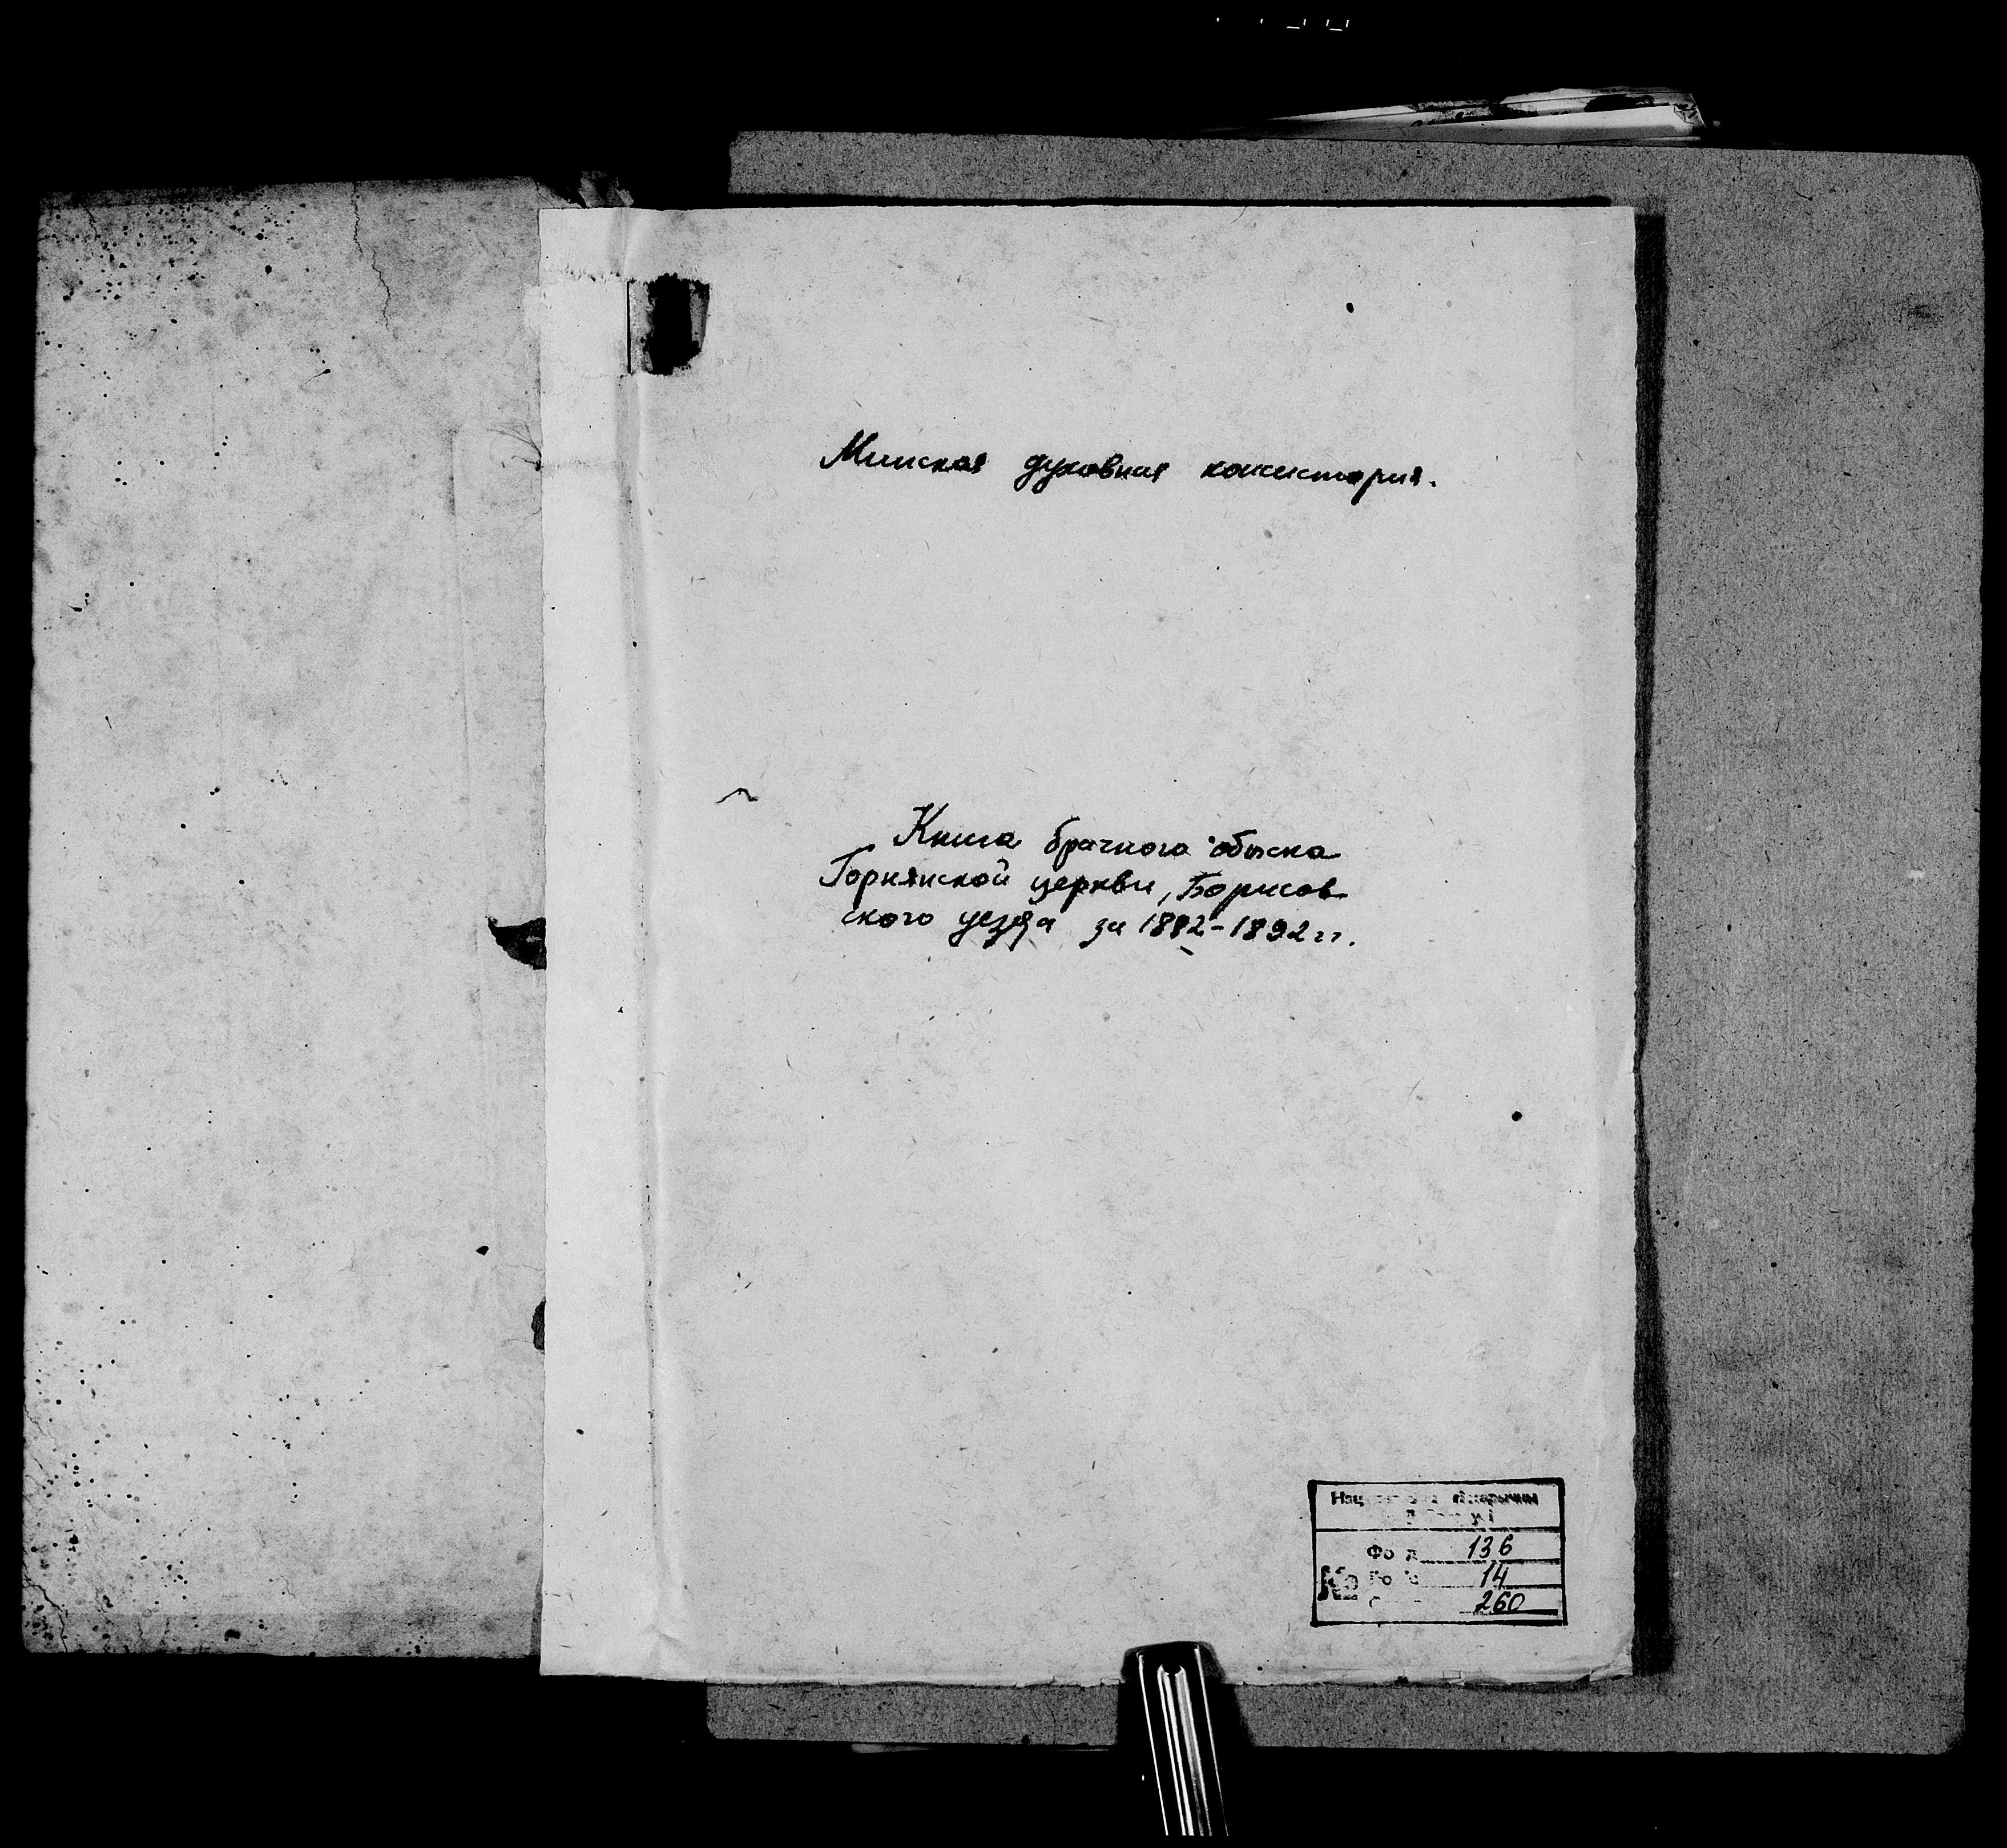 Минская духовная консистория.
Книга брачного обыска
Горкянской церкви, Борисов
ского уезда за 1882-1892 гг.
136
№ 14
260